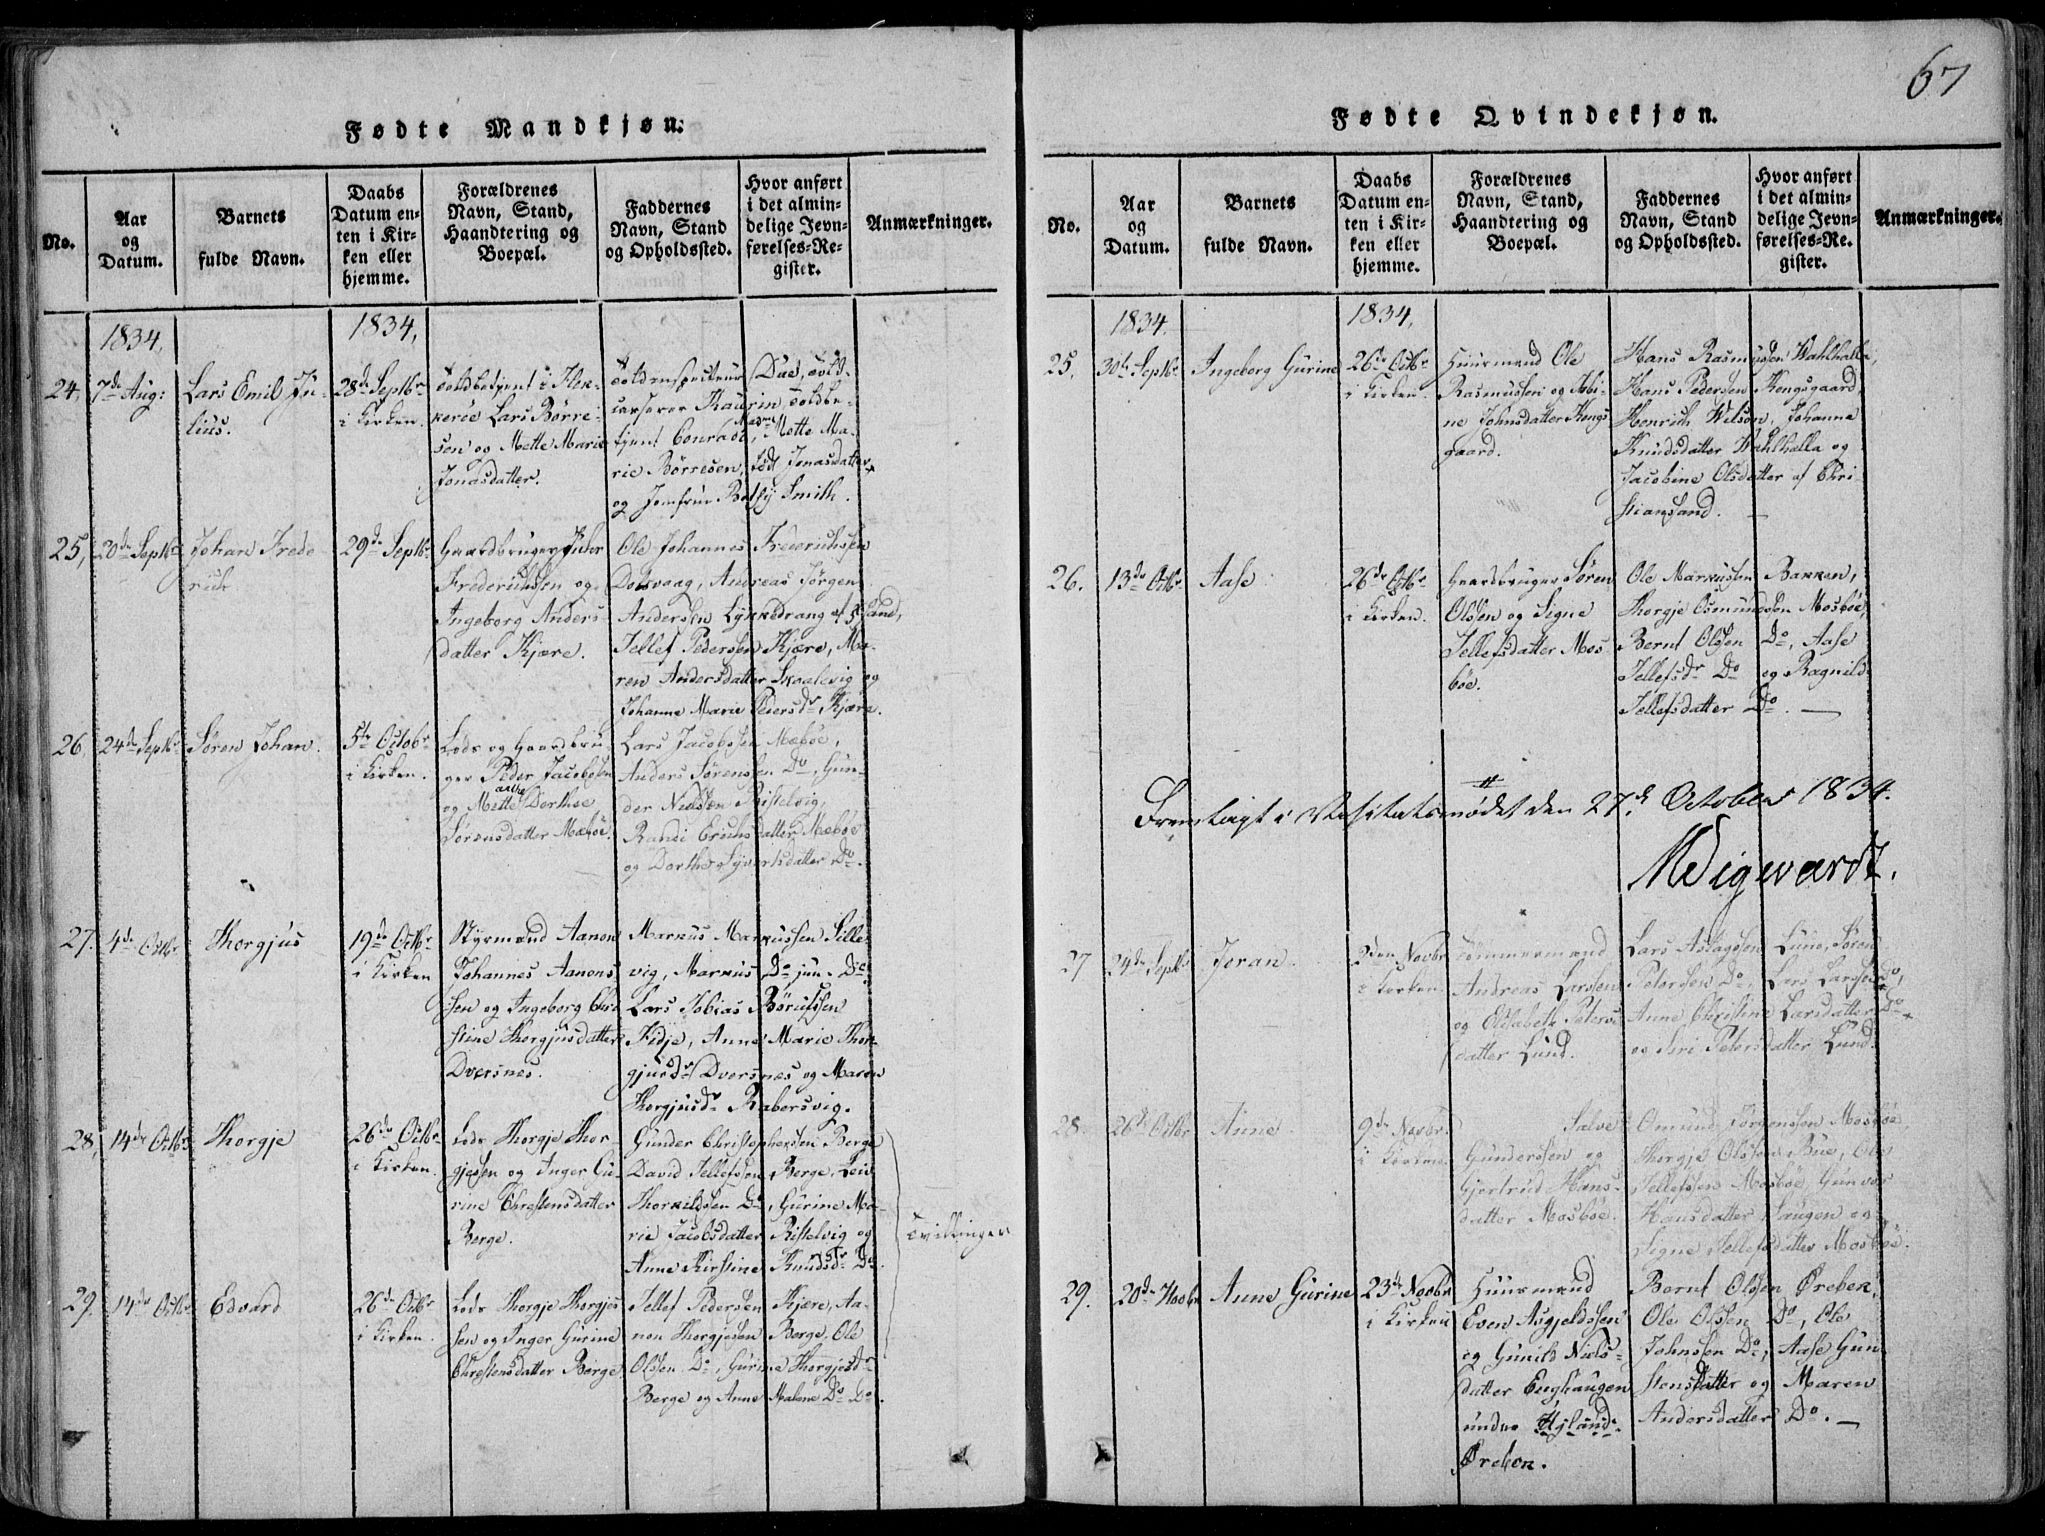 67
Fødte Mandkjøn.
No.
Aar
og
Datum.
Barnets
fulde Navn.
Daabs
Datum en-
ten i Kir-
ken eller
hjemme.
Forældrenes
Navn, Stand,
Haandtering og
Boepæl.
Faddernes
Navn, Stand
og Opholdssted.
Hvor anført
i det almin-
delige Jevn-
førelses-Re-
gister.
Anmærkninger.
1834.
1834.
24.
7de Aug:
Lars Emil Ju-
lius.
28de Septbr
i Kirken.
Toldbetjent i Flek-
keröe Lars Börre-
sen og Mette Marie
Jonasdatter.
Toldinspecteur Dae, Told-
casserer Kaurin, Toldbe-
tjent Conradi, Mad. Mette Ma-
rie Börresen, født Jonasdatter
og Jomfrue Betsy Smith.
25,
20de Septbr
Johan Frede
rich
29de Septbr
Gaardbruger Peder
Frederichsen og
Ingeborg Anders
datter Kjære.
Ole Johannes Frederichsen
Dolsvaag, Andreas Jörgen
Andersen Lykkedrang af
Tellef Pedersen Kjære, Ma-
ren Andersdatter Skaalevig og
Johanne Marie Pedersdr Kjære.
26
24de Septbr
Sören Johan.
5te Octobr
i Kirken.
Lods og Gaardbru
ger Peder Jacobsen
og Mette Aasse Dorthee
Sörensdatter Mæböe.
Lars Jacobsen Mæböe,
Anders Sörensen Do, Gun-
der Nielsen Ristelvig,
Randi Erichsdatter Mæböe
og Dorthe Syvertsdatter Do.
27.
4de Octbr
Thorgjus
19de Octbr
i Kirken
Styrmand Aanon
Johannes Aanons
sen og Ingeborg Chri
stine Thorgjusdatter
Dversnes.
Markus Markussen Kille
vig, Markus Do jun. Do
Lars Tobias Börufsen
Fidje, Anne Marie Thor-
gjusdr Dversnes og Maren
Thorgjusdr Rabersvig.
28,
14de Octbr
Thorgje
26de Octbr
i Kirken.
Lods Thorgje Thor-
gjesen og Inger Gu-
rine Christensdatter
Berge.
Gunder Christophersen Berge
David Tellefsen Berge, Leiv
Thorkildsen Do, Gurine Ma-
rie Jacobsdatter Ristelvig og
Anne Kirstine Knudsdr Do.
Tvillinger
29.
14de Octbr
Edvard
26de Octbr
i Kirken.
Lods Thorgje Thorgjes
sen og Inger Gurine
Christensdatter Berge
Tellef Pedersen Kjære, Aa-
non Thorgjesen Berge, Ole
Olsen Do, Gurine Thorgjesdr
Berge og Anne Malene Do Do.
Fødte Qvindekjøn.
No.
Aar
og
Datum.
Barnets
fulde Navn.
Daabs
Datum en-
ten i Kir-
ken eller
hjemme.
Forældrenes
Navn, Stand,
Haandtering og
Boepæl.
Faddernes
Navn, Stand
og Opholdssted.
Hvor anført
i det almin-
delige Jevn-
førelses-Re-
gister.
Anmærkninger.
1834.
1834.
25.
30te Septbr
Ingeborg Gurine
26de Octbr
i Kirken.
Huusmand Ole
Rasmussen og Abi-
ne Johnsdatter Kongs
gaard.
Hans Rasmussen Walhalla,
Hans Pedersen Kongsgaard,
Henrich Wilson, Johanne
Knudsdatter Wahlhalla og
Jacobine Olsdatter af Chri-
stiansand.
26.
13de Octbr
Aase
26de Octbr
i Kirken.
Gaardbruger Sören
Olsen og Signe
Tellefsdatter Mos
böe.
Ole Markussen Bakken,
Thorgje Osmundsen Mosböe,
Bernt Olsen Do, Aase
Tellefsdr Do og Ragnild
Tellefsdatter Do.
Fremlagt i Visitatsmödet den 27de October 1834.
MSigwardt.
27
24de Septbr
Joran.
2den Novbr
i Kirken
Tömmermand
Andreas Larssen
og Elisabeth Peters
datter Lund.
Lars Aslagsen Lund, Sören
Petersen Do, Lars Larssen Do,
Anne Christine Larsdatter Do
og Siri Petersdatter Lund.
28.
26de Octbr
Anne
9de Novbr
i Kirken.
Salve
Gundersen og
Gjertrud Hans-
datter Mosböe.
Omund Jörgensen Mosböe,
Thorgje Olsen Bue, Ole
Tellefsen Mosböe, Gunvor
Hansdatter Haugen og
Signe Tellefsdatter Mosböe.
29.
20de Novbr
Anne Gurine
23de Novbr
i Kirken
Huusmand
Even Asgjeldsen
og Gunild Niels-
datter Enghaugen
under Hyland-
Örebek.
Bernt Olsen Örebek,
Ole Olsen Do, Ole
Johnsen Do, Aase Gun-
stensdatter og Maren
Andersdatter Do.